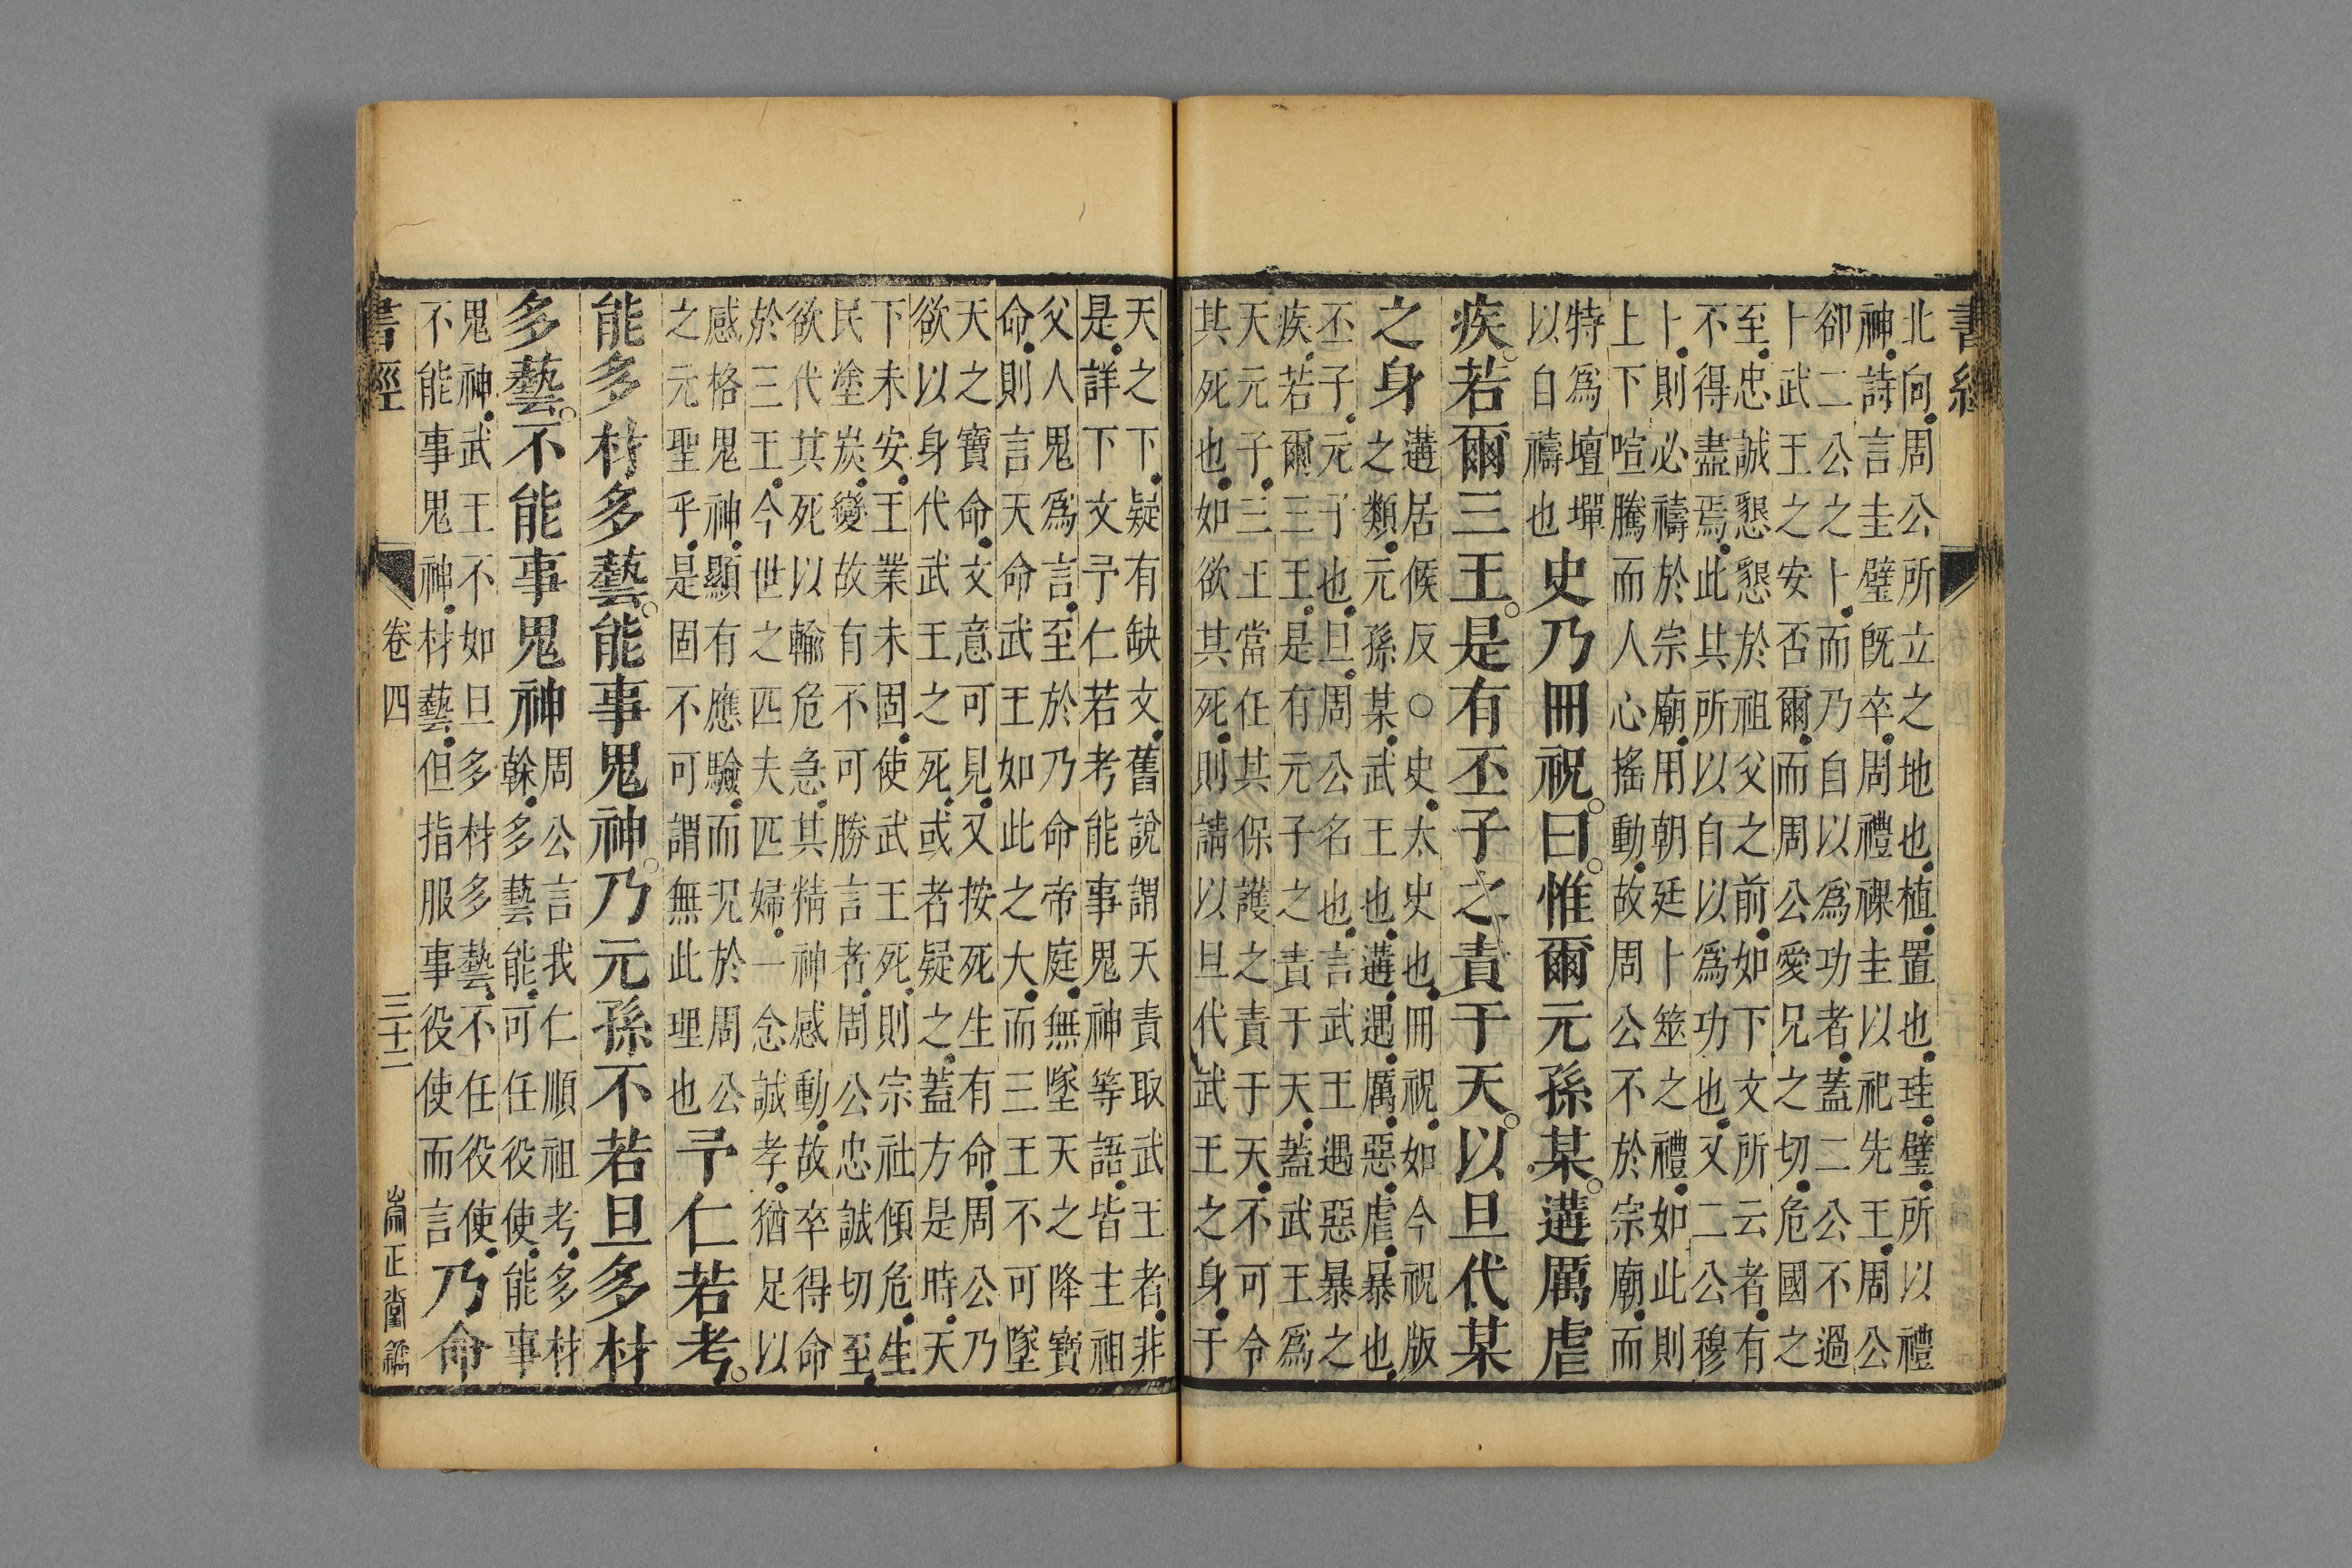 書經
北向周公所立之地也植置也珪璧所以禮
神詩言圭璧既卒周禮祼圭以祀先王周公
卻二公之卜而乃自以爲功者蓋二公不過
卜武王之安否爾而周公愛兄之切危國之
至忠誠懇懇於祖父之前如下文所云者有
不得盡焉此其所以自以爲功也又二公穆
卜則必禱於宗廟用朝廷卜筮之禮如此則
上下喧騰而人心搖動故周公不於宗廟而
特爲壇墠
以自禱也
史乃冊祝曰惟爾元孫某遘厲虐
疾若爾三王是有丕子之責于天以旦代某
之身
遘居候反○史太史也冊祝如今祝版
之類元孫某武王也遘遇厲惡虐暴也
丕子元子也旦周公名也言武王遇惡暴之
疾若爾三王是有元子之責于天蓋武王爲
天元子三王當任其保護之責于天不可令
其死也如欲其死則請以旦代武王之身于
天之下疑有缺文舊說謂天責取武王者非
是詳下文予仁若考能事鬼神等語皆主祖
父人鬼爲言至於乃命帝庭無墜天之降寶
命則言天命武王如此之大而三王不可墜
天之寶命文意可見又按死生有命周公乃
欲以身代武王之死或者疑之蓋方是時天
下未安王業未固使武王死則宗社傾危生
民塗炭變故有不可勝言者周公忠誠切至
欲代其死以輸危急其精神感動故卒得命
於三王今世之匹夫匹婦一念誠孝猶足以
感格鬼神顯有應驗而況於周公
之元聖乎是固不可謂無此理也
予仁若考
能多材多藝能事鬼神乃元孫不若旦多材
多藝不能事鬼神
周公言我仁順祖考多材
榦多藝能可任役使能事
鬼神武王不如旦多材多藝不任役使
不能事鬼神材藝但指服事役使而言
乃命
書經 卷四 三十二 正堂鐫